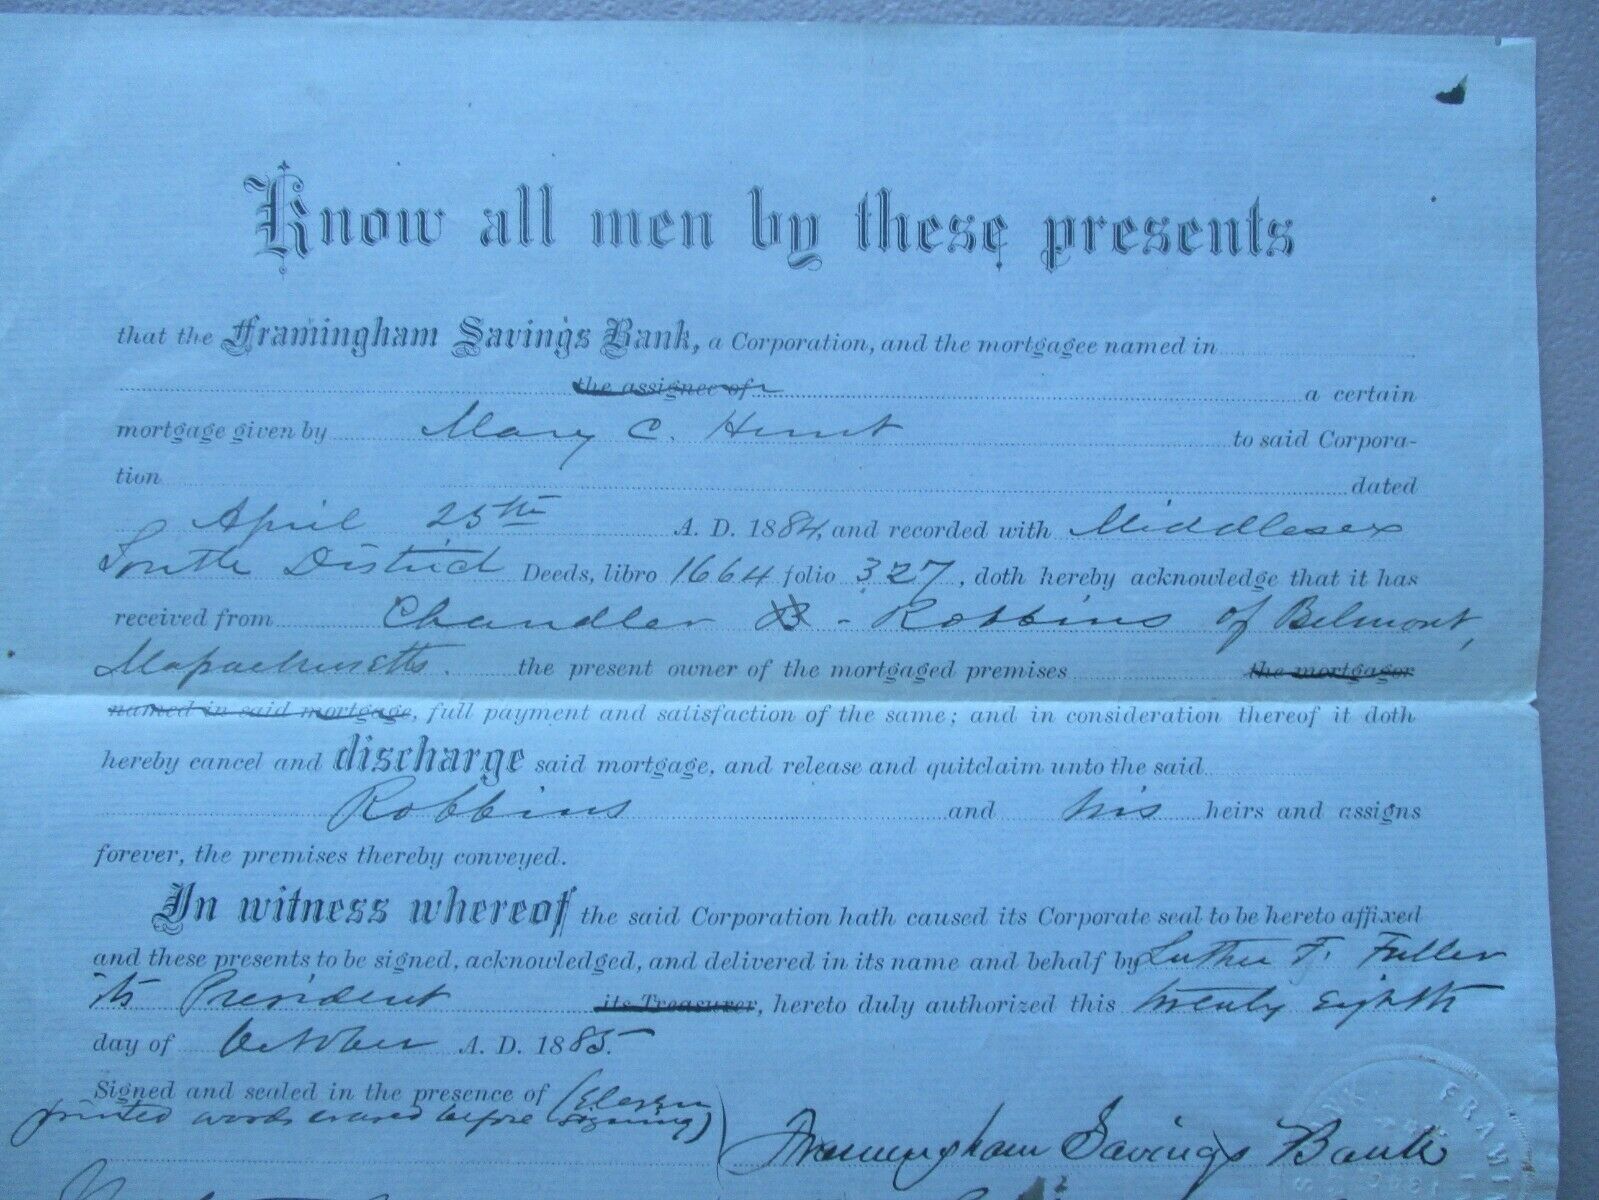 Know all men by these presents
that the Framingham Savings Bank, a Corporation, and the mortgagee named in
the assignee of a certain
mortgage given by Mary C. Hunt to said Corpora-
tion dated
April 25th A. D. 1884, and recorded with Middlesex
South District Deeds, libro 1664 folio 327, doth hereby acknowledge that it has
received from Chandler B - Robbins of Belmont,
Massachusetts. the present owner of the mortgaged premises the mortgagor
named in said mortgage, full payment and satisfaction of the same; and in consideration thereof it doth
hereby cancel and discharge said mortgage, and release and quitclaim unto the said
Robbins and his heirs and assigns
forever, the premises thereby conveyed.
In witness whereof the said Corporation hath caused its Corporate seal to be hereto affixed
and these presents to be signed, acknowledged, and delivered in its name and behalf by Luther F. Fuller
its President its Treasurer, hereto duly authorized this twenty eighth
day of October A. D. 1885.
Signed and sealed in the presence of (Eleven
printed words erased before signing)
Framingham Savings Bank